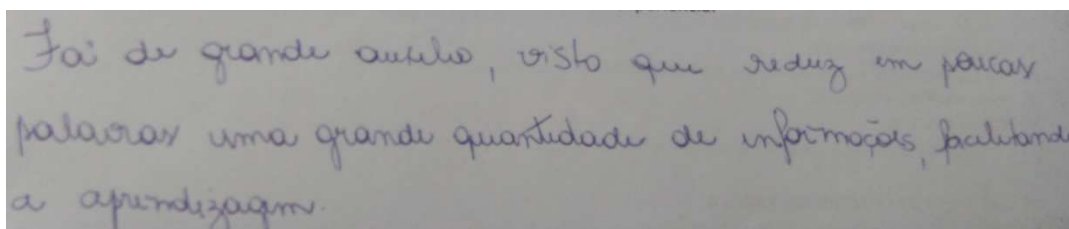 Foi de grande auxilio, visto que reduz em poucas
palavras uma grande quantidade de informações, facilitando
a aprendizagem.